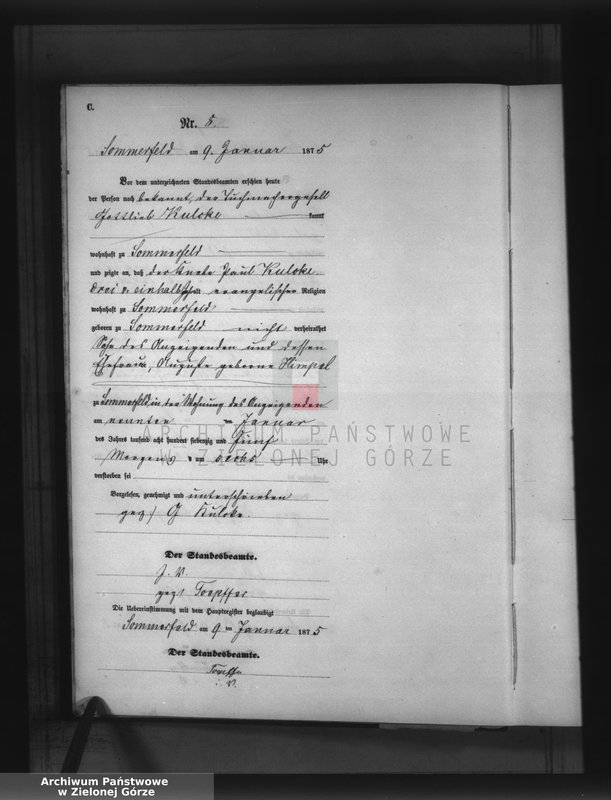 C.
Nr. 5.
Sommerfeld am 9. Januar 1875
Vor dem unterzeichneten Standesbeamten erschien heute
der Person nach bekannt, der Tuchmachergesell
Gottlieb Kulcke kannt
wohnhaft zu Sommerfeld
und zeigte an, daß der Knabe Paul Kulcke
drei u. einhalb Jahr alt evangelischer Religion
wohnhaft zu Sommerfeld
geboren zu Sommerfeld nicht verheirathet
Sohn des Anzeigenden und dessen
Ehefrau, Auguste geborne Himpel
zu Sommerfeld in der Wohnung des Anzeigenden
am neunten Januar
des Jahres tausend acht hundert siebenzig und fünf
Morgens um sechs Uhr
verstorben sei
Vorgelesen, genehmigt und unterschrieben
gez.) G Kulcke.
Der Standesbeamte.
J. V.
gez. Toepffer
Die Uebereinstimmung mit dem Hauptregister beglaubigt
Sommerfeld am 9 ten Januar 1875
Der Standesbeamte.
Toepffer
i. V.
ARCHIWUM PAŃSTWOWE
W ZIELONEJ GÓRZE
Archiwum Państwowe
w Zielonej Górze